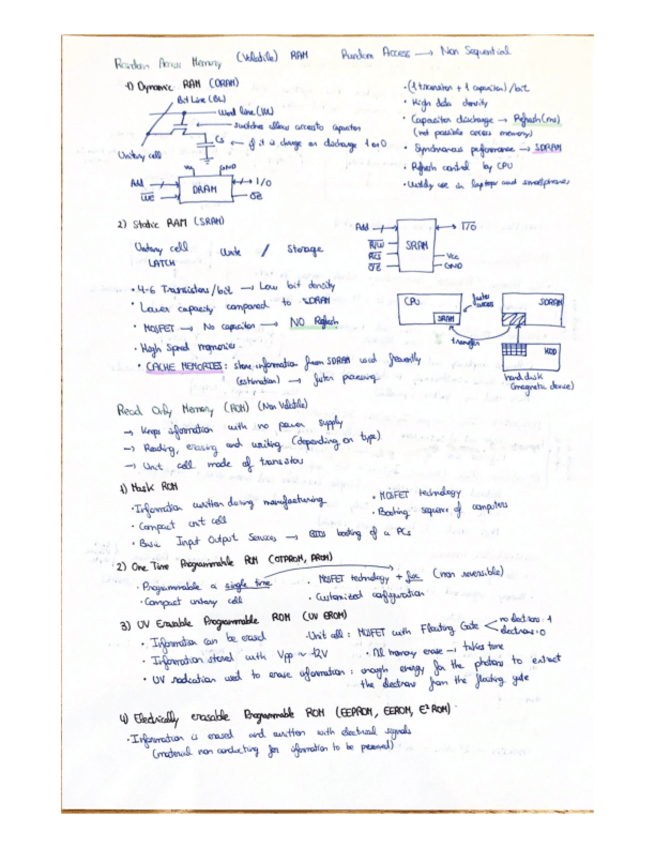 Random Access Memory (Volatile) RAM Random Access → Non Sequential
1) Dynamic RAM (DRAM)
Bit Line (BL)
Word line (WL)
switches allow access to capacitor
Cs ← if it is charge or discharge 1 or 0
Unitary cell
Vcc GND
Add DRAM I/O
WE OE
· (1 transistor + 1 capacitor)/bit
· High data density
· Capacitor discharge → Refresh (ms)
(not possible access memory)
· Synchronous performance → SDRAM
· Refresh control by CPU
· Widely use in laptops and smartphones
2) Static RAM (SRAM)
Unitary cell Unit / Storage
LATCH
Add SRAM I/O
R/W
RCS Vcc
OE GND
· 4-6 Transistors/bit → Low bit density
· Lower capacity compared to SDRAM
· MOSFET → No capacitor → NO Refresh
· High Speed memories
· CACHE MEMORIES: store information from SDRAM used frequently
(estimation) → faster processing
CPU faster access SDRAM
SRAM
transfer
HDD
hard disk
(magnetic device)
Read Only Memory (ROM) (Non Volatile)
→ Keeps information with no power supply
→ Reading, erasing and writing (depending on type)
→ Unit cell made of transistors
1) Mask ROM
· Information written during manufacturing
· Compact unit cell
· Basic Input Output Services → BIOS booting of a PCs
· MOSFET technology
· Booting sequence of computers
2) One Time Programmable ROM (OTPROM, PROM)
· Programmable a single time
· Compact unitary cell
· MOSFET technology + fuse (non reversible)
· Customized configuration
3) UV Erasable Programmable ROM (UV EROM)
· Information can be erased · Unit cell: MOSFET with Floating Gate no electrons: 1
electrons: 0
· Information stored with Vpp ~ 12V · All memory erase → takes time
· UV radiation used to erase information: enough energy for the photons to extract
the electrons from the floating gate
4) Electrically erasable Programmable ROM (EEPROM, EEROM, E²ROM)
· Information is erased and written with electrical signals
(material non conducting for information to be preserved)